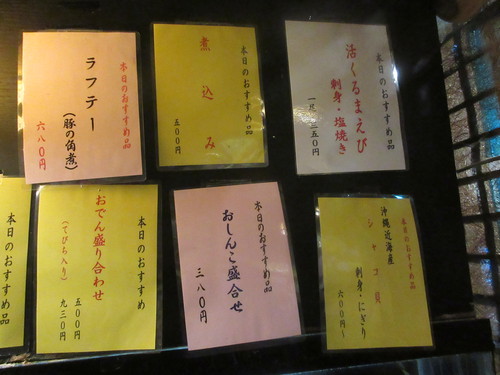 本日のおすすめ品
ラフテー
(豚の角煮)
六八〇円
本日のおすすめ品
煮込み
五〇〇円
本日のおすすめ品
活くるまえび
刺身・塩焼き
一尾、三五〇円
本日のおすすめ品
本日のおすすめ
おでん盛り合わせ
(てびち入り)
五〇〇円
九三〇円
本日のおすすめ品
おしんこ盛合せ
三八〇円
本日のおすすめ品
沖縄近海産
シャコ貝
刺身・にぎり
六〇〇円〜